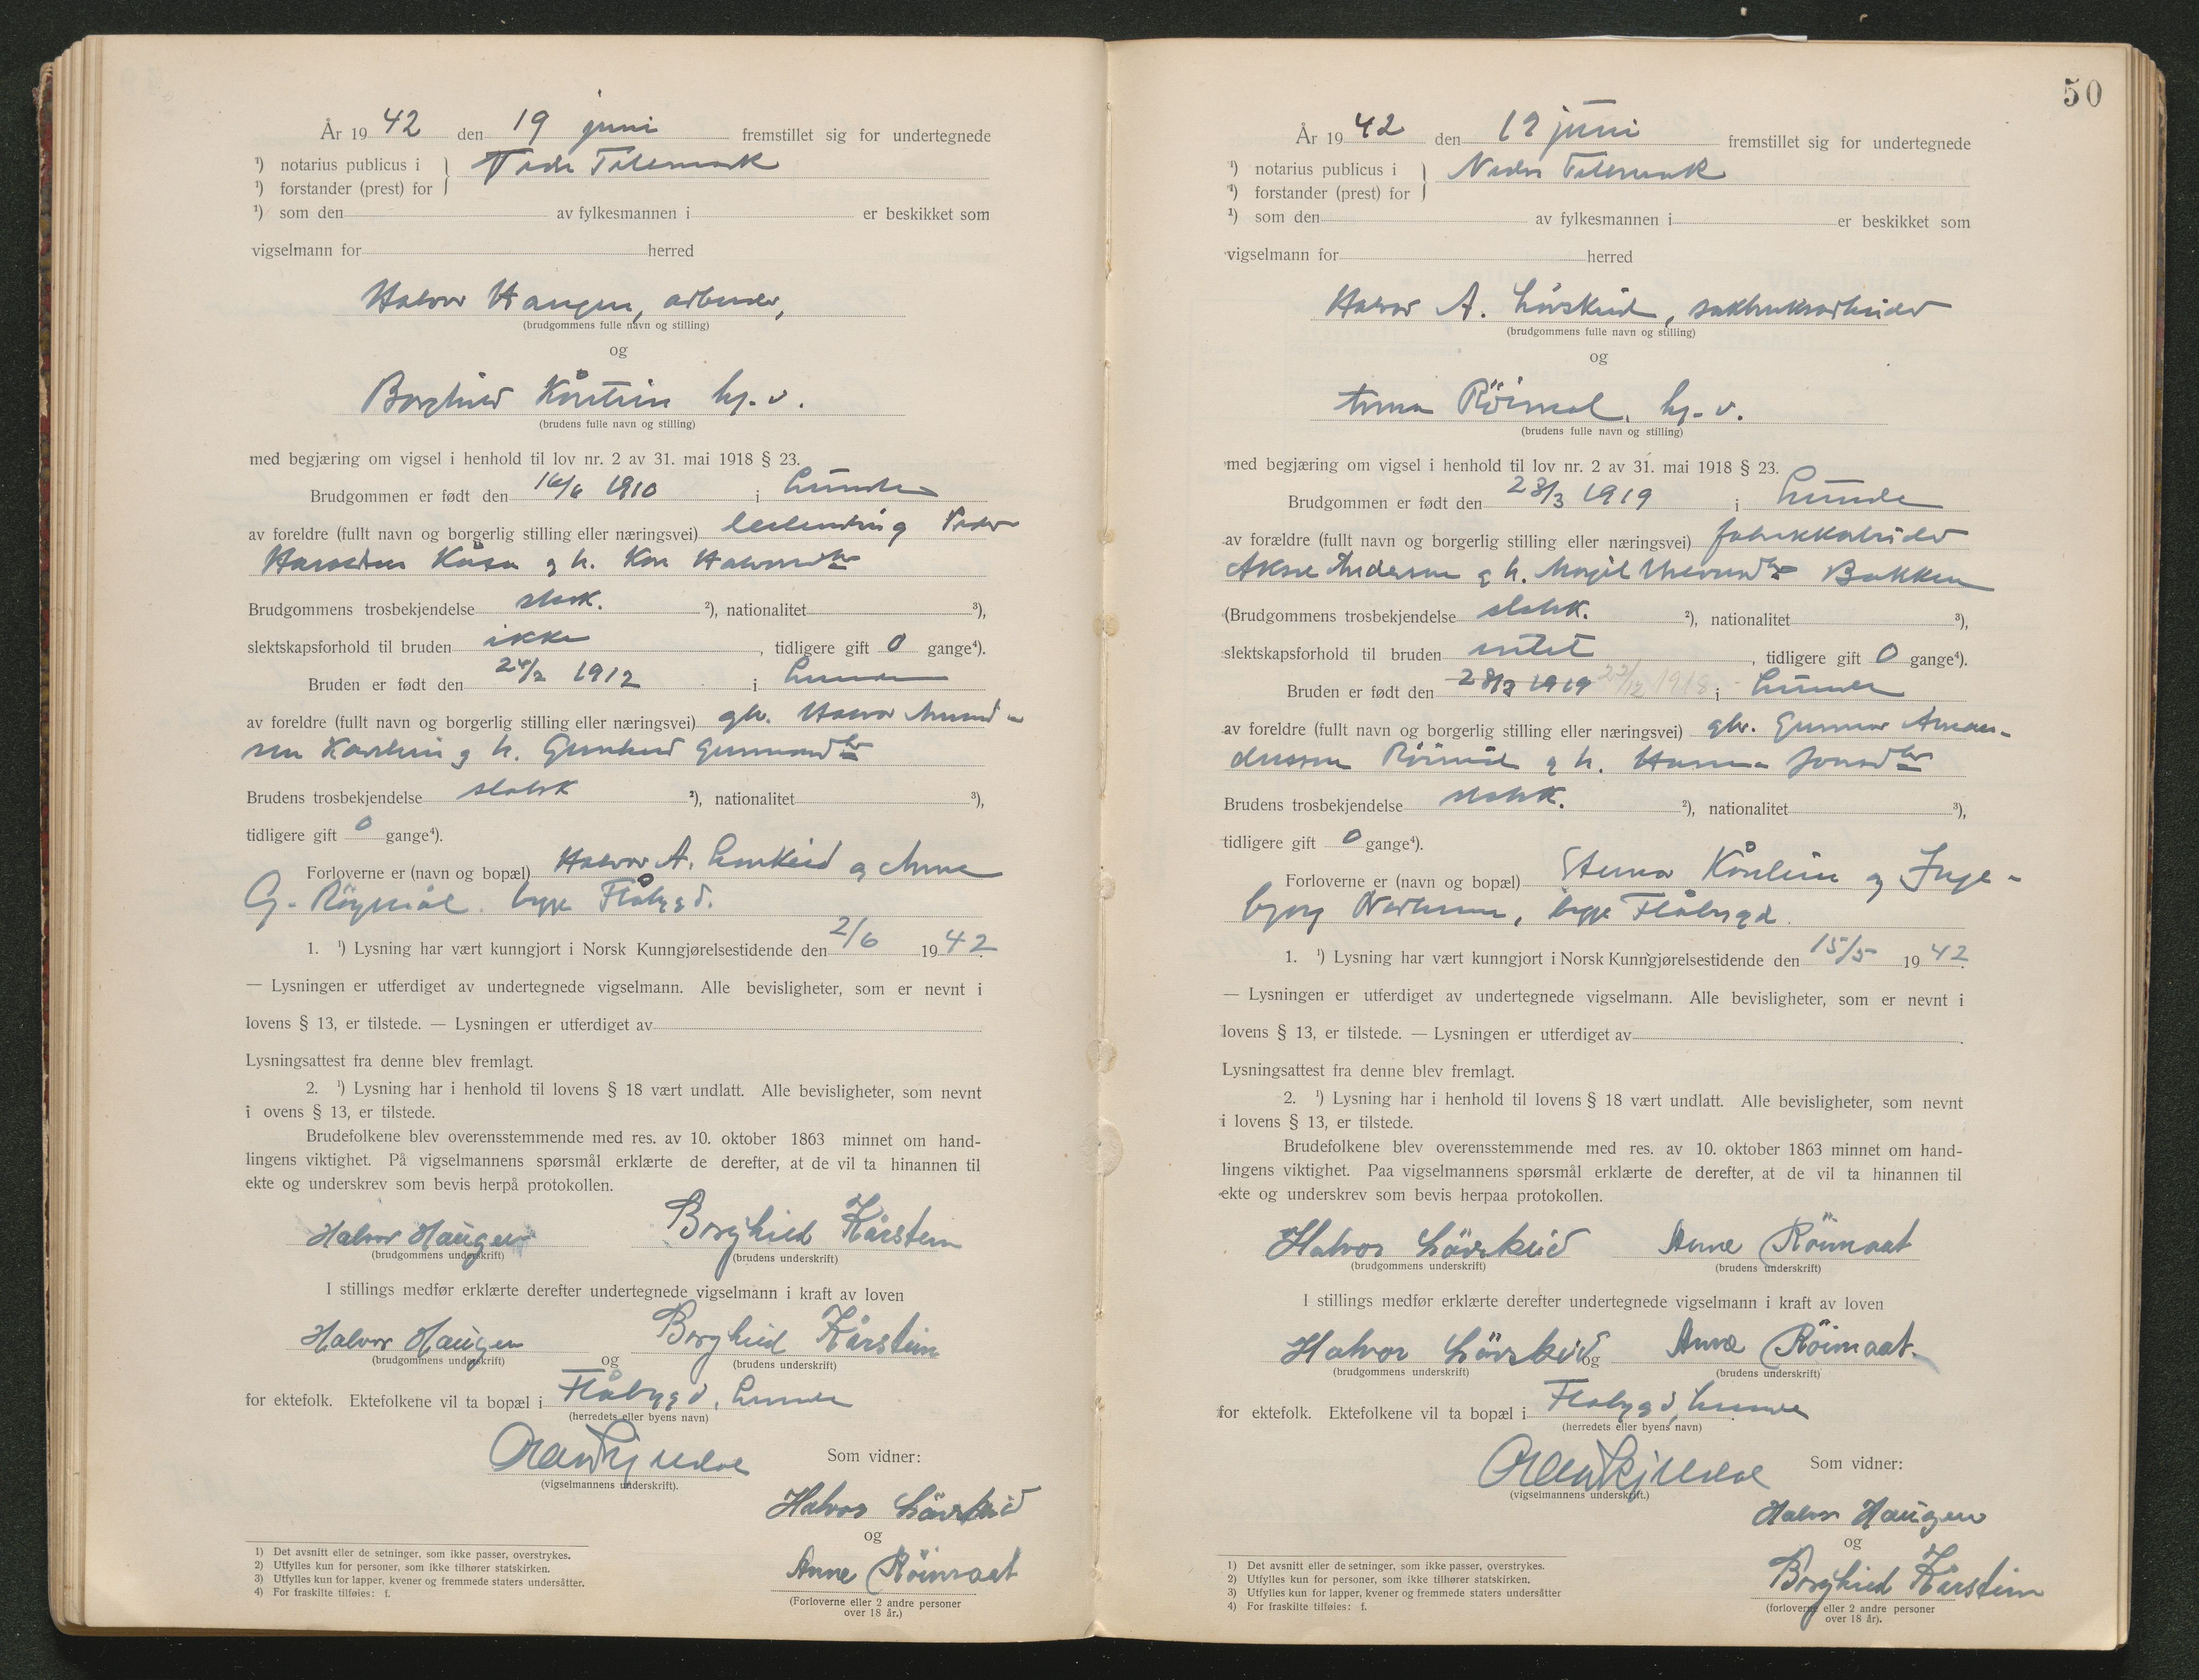 År 19 42 den 19 juni fremstillet sig for undertegnede
¹) notarius publicus i
¹) forstander (prest) for
Telemark
¹) som den av fylkesmannen i er beskikket som
vigselmann for herred
Halvor Haugen, arbeider,
(brudgommens fulle navn og stilling)
og
Borghild Kårstein hj.v.
(brudens fulle navn og stilling)
med begjæring om vigsel i henhold til lov nr. 2 av 31. mai 1918 § 23.
Brudgommen er født den 16/6 1910 i Lunde
av foreldre (fullt navn og borgerlig stilling eller næringsvei) leilending Peder
Kåsa og h. Kari Halvorsdtr
Brudgommens trosbekjendelse statsk. ²), nationalitet ³),
slektskapsforhold til bruden ikke , tidligere gift 0 gange⁴).
Bruden er født den 24/2 1912 i Lunde
av foreldre (fullt navn og borgerlig stilling eller næringsvei) gbr. Halvor Amund-
sen Kårstein og h. Gunhild Gunnarsdtr
Brudens trosbekjendelse statsk ²), nationalitet ³),
tidligere gift 0 gange⁴).
Forloverne er (navn og bopæl) Halvor A. Lövskeid og Anne
G. Röymål. begge Flåbygd.
1. ¹) Lysning har vært kunngjort i Norsk Kunngjørelsestidende den 2/6 19 42.
— Lysningen er utferdiget av undertegnede vigselmann. Alle bevisligheter, som er nevnt i
lovens § 13, er tilstede. — Lysningen er utferdiget av
Lysningsattest fra denne blev fremlagt.
2. ¹) Lysning har i henhold til lovens § 18 vært undlatt. Alle bevisligheter, som nevnt
i ovens § 13, er tilstede.
Brudefolkene blev overensstemmende med res. av 10. oktober 1863 minnet om hand-
lingens viktighet. På vigselmannens spørsmål erklærte de derefter, at de vil ta hinannen til
ekte og underskrev som bevis herpå protokollen.
Halvor Haugen Borghild Kårstein
(brudgommens underskrift) (brudens underskrift)
I stillings medfør erklærte derefter undertegnede vigselmann i kraft av loven
Halvor Haugen og Borghild Kårstein
(brudgommens underskrift) (brudens underskrift)
for ektefolk. Ektefolkene vil ta bopæl i Flåbygd, Lunde
(herredets eller byens navn)
(vigselmannens underskrift).
Som vidner:
Halvor Lövskeid
og
Anne Röimaal
(Forloverne eller 2 andre personer
over 18 år.)
1) Det avsnitt eller de setninger, som ikke passer, overstrykes.
2) Utfylles kun for personer, som ikke tilhører statskirken.
3) Utfylles kun for lapper, kvener og fremmede staters undersåtter.
4) For fraskilte tilføies: f.
50
År 19 42 den 19 juni fremstillet sig for undertegnede
¹) notarius publicus i
¹) forstander (prest) for
Nedre Telemark
¹) som den av fylkesmannen i er beskikket som
vigselmann for herred
Halvor A. Lövskeid, sagbruksarbeider
(brudgommens fulle navn og stilling)
og
Anna Röimål. hj.-v.
(brudens fulle navn og stilling)
med begjæring om vigsel i henhold til lov nr. 2 av 31. mai 1918 § 23.
Brudgommen er født den 28/3 1919 i Lunde
av forældre (fullt navn og borgerlig stilling eller næringsvei) fabrikkarbeider
Aksel Andersen og h. Margit Bakken
(Brudgommens trosbekjendelse statsk. ²), nationalitet ³),
slektskapsforhold til bruden intet , tidligere gift 0 gange⁴).
Bruden er født den 28/3 1919 22/12 1918 i Lunde
av foreldre (fullt navn og borgerlig stilling eller næringsvei) gbr. Gunnar Aman-
dussen Röimål og h. Hanna Jonsdtr
Brudens trosbekjendelse statsk. ²), nationalitet ³),
tidligere gift 0 gange⁴).
Forloverne er (navn og bopæl) Kårstein og Inge-
bjørg begge Flåbygd.
1. ¹) Lysning har vært kunngjort i Norsk Kunngjørelsestidende den 15/5 19 42.
— Lysningen er utferdiget av undertegnede vigselmann. Alle bevisligheter, som er nevnt i
lovens § 13, er tilstede. — Lysningen er utferdiget av
Lysningsattest fra denne blev fremlagt.
2. ¹) Lysning har i henhold til lovens § 18 vært undlatt. Alle bevisligheter, som nevnt
i lovens § 13, er tilstede.
Brudefolkene blev overensstemmende med res. av 10. oktober 1863 minnet om hand-
lingens viktighet. Paa vigselmannens spørsmål erklærte de derefter, at de vil ta hinannen til
ekte og underskrev som bevis herpaa protokollen.
Halvor Lövskeid Anne Röimaal
(brudgommens underskrift) (brudens underskrift)
I stillings medfør erklærte derefter undertegnede vigselmann i kraft av loven
Halvor Lövskeid og Anne Röimaal
(brudgommens underskrift) (brudens underskrift)
for ektefolk. Ektefolkene vil ta bopæl i Flåbygd, Lunde
(herredets eller byens navn)
(vigselmannens underskrift.)
Som vidner:
Halvor Haugen
og
Borghild Kårstein
(forloverne eller 2 andre personer
over 18 år).
1) Det avsnitt eller de setninger, som ikke passer, overstrykes.
2) Utfylles kun for personer, som ikke tilhører statskirken.
3) Utfylles kun for lapper, kvener og fremmede staters undersåtter
4) For fraskilte tilføies: f.